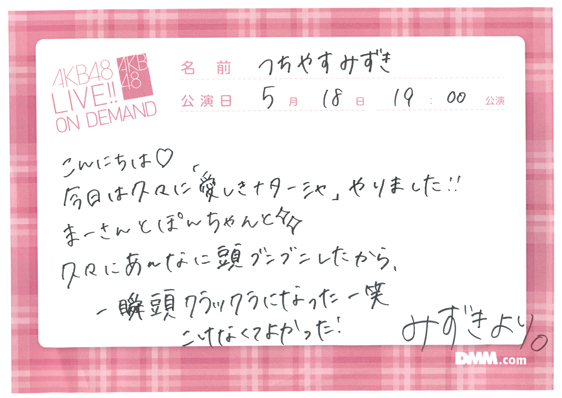 AKB48
LIVE!!
ON DEMAND
AKB
48
名前 つちやすみずき
公演日 5月 18日 19:00 公演
こんにちは♡
今日は久々に「愛しきナターシャ」やりました!!
まーさんとぽんちゃんと
久々にあんなに頭ブンブンしたから、
一瞬頭クラックラになったー笑
こけなくてよかった!
みずきより。
DMM.com